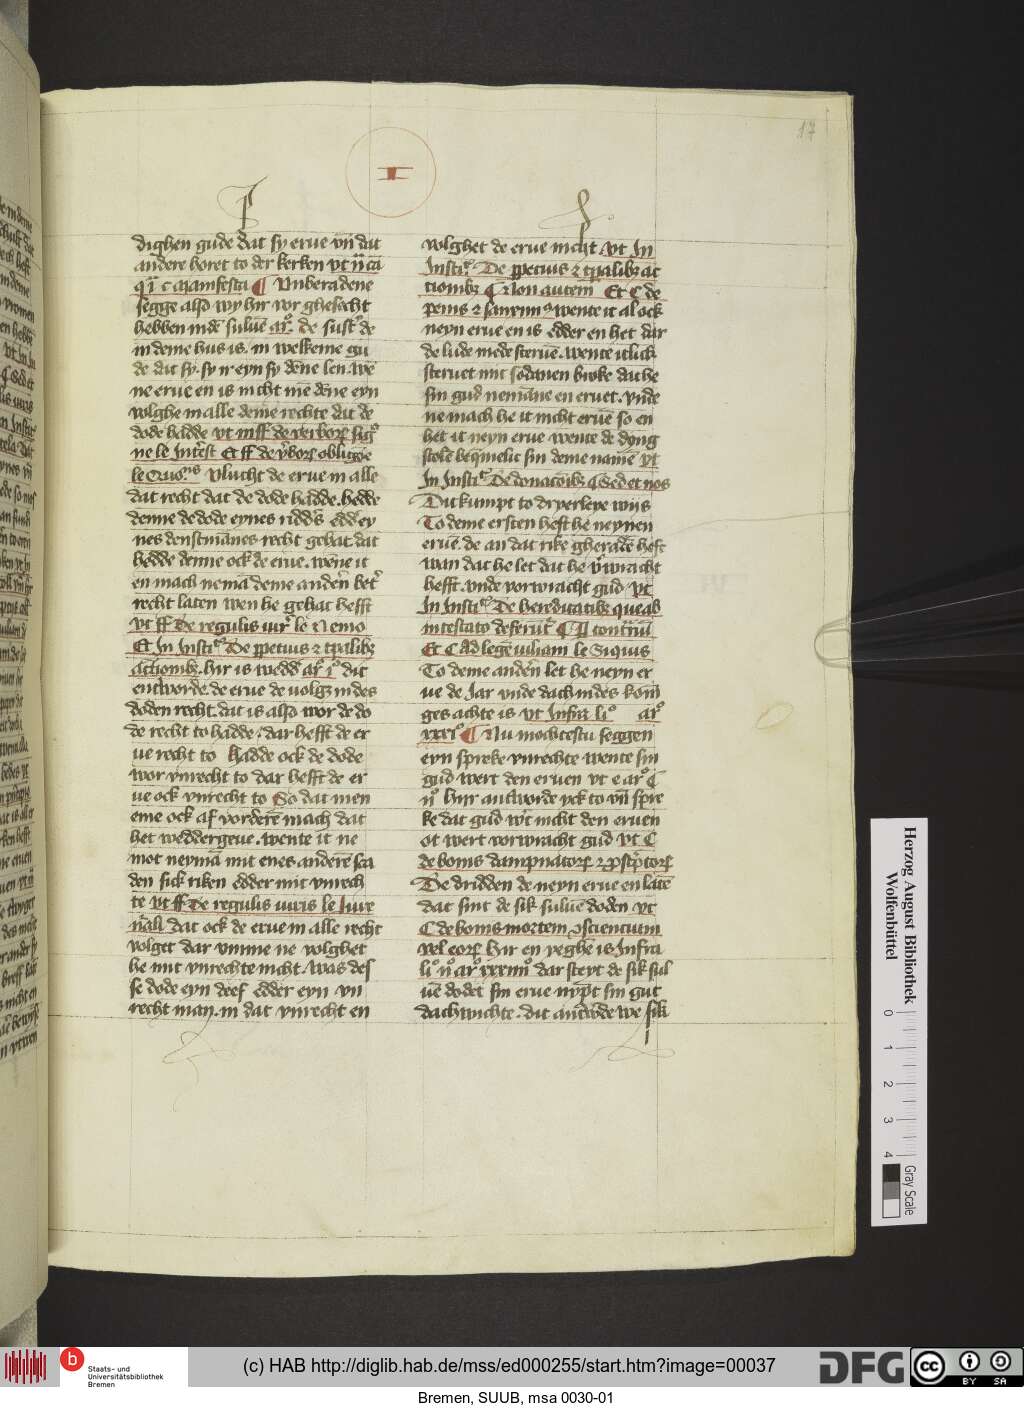 17
I
dighen gude dat sy erue vn̄ dat
andere horet to der kerken vt
manifesta ¶ Vnberadene
segge also wy hir vor ghesecht
hebben in de suluē ar̊. de sust' de
in deme hus is. in welkeme gu
de dit sy. sy it eyn sy dēne len. wē
ne erue en is nicht mē dēne eyn
volghe in alle deme rechte dat de
dode hadde vt in ff de verbor sig̊
ne le Int'est Et ff de v'bor obligōe
le Vlucht de erue in alle
dat recht dat de dode hadde. hedde
denne de dode eynes ridd's edd' ey
nes denstmānes recht gehat dat
hedde denne ock de erue. wēne it
en mach nemā deme andern bet'
recht laten wen he gehat hefft
vt ff De regulis iur' le Nemo
Et In Insti' De ppetuis et tpalibꝫ
actionibꝫ. hir is wedd' ar̊ i̊ dit
entworde. de erue de uolgꝫ in des
doden recht. dat is also wor de do
de recht to hadde. dar hefft de er
ue recht to hadde ock de dode
wor vnrecht to dar hefft de er
ue ock vnrecht to So dat men
eme ock af vorderē mach dat
het weddergeue. wente it ne
mot neymā mit enes anderē sca
den sick riken edder mit vnrech
te vt ff De regulis iuris le Iure
dat ock de erue in alle recht
volget dar vmme ne volghet
he mit vnrechte nicht. was des
se dode eyn deef edder eyn vn
recht man. in dat vnrecht en
volghet de erue nicht vt In
Insti' De ppetuis et tpalibꝫ ac
tionibꝫ ¶ Non autem Et C de
wente it al ock
neyn erue en is edder en het dar
de lude mede steruē. wente itlick
steruet mit sodanen broke dat he
sin gud nemāne en eruet. vnde
ne mach he it nicht eruē so en
het it neyn erue wente de dyng
sin deme namē vt
In Insti' De donacōibꝫ ¶ Sed et nos
Dit kumpt to dryerleye wijs
To deme ersten heft he neynen
eruē. de an dat rike gheradē heft
wan dat he let dat he v'wracht
hefft. vnde vorwracht gud vt
In Insti' De hereditatibꝫ que ab
intestato deferūt'
Et C Ad legē iuliam le Siquis
To deme andēn let he neyn er
ue de Jar vnde dach in des konī
ges achte is vt Infra li̊ ar̊
xxxi̊ ¶ Nu mochtestu seggen
eyn spreke vnrechte wente sin
gud wert den eruen vt e ar̊ C
ij̊ Hyr antworde yck to vn̄ spre
ke dat gud wt nicht den eruen
ot wert vorwracht gud vt C
de bonis dampnator
De dridden de neyn erue en latē
dat sint de sik suluē doden vt
C de bonis mortem sciencium
vel eor hir en yeghē is Infra
li̊ ij̊ ar̊ xxxiiij̊ dar steyt de sik sul
uē dodet sin erue nypt sin gut
dach wichte. dit antw'de we sik
Herzog August Bibliothek
Wolfenbüttel
0 1 2 3 4
Gray Scale
b Staats- und
Universitätsbibliothek
Bremen
(c) HAB http://diglib.hab.de/mss/ed000255/start.htm?image=00037
DFG
cc BY SA
Bremen, SUUB, msa 0030-01